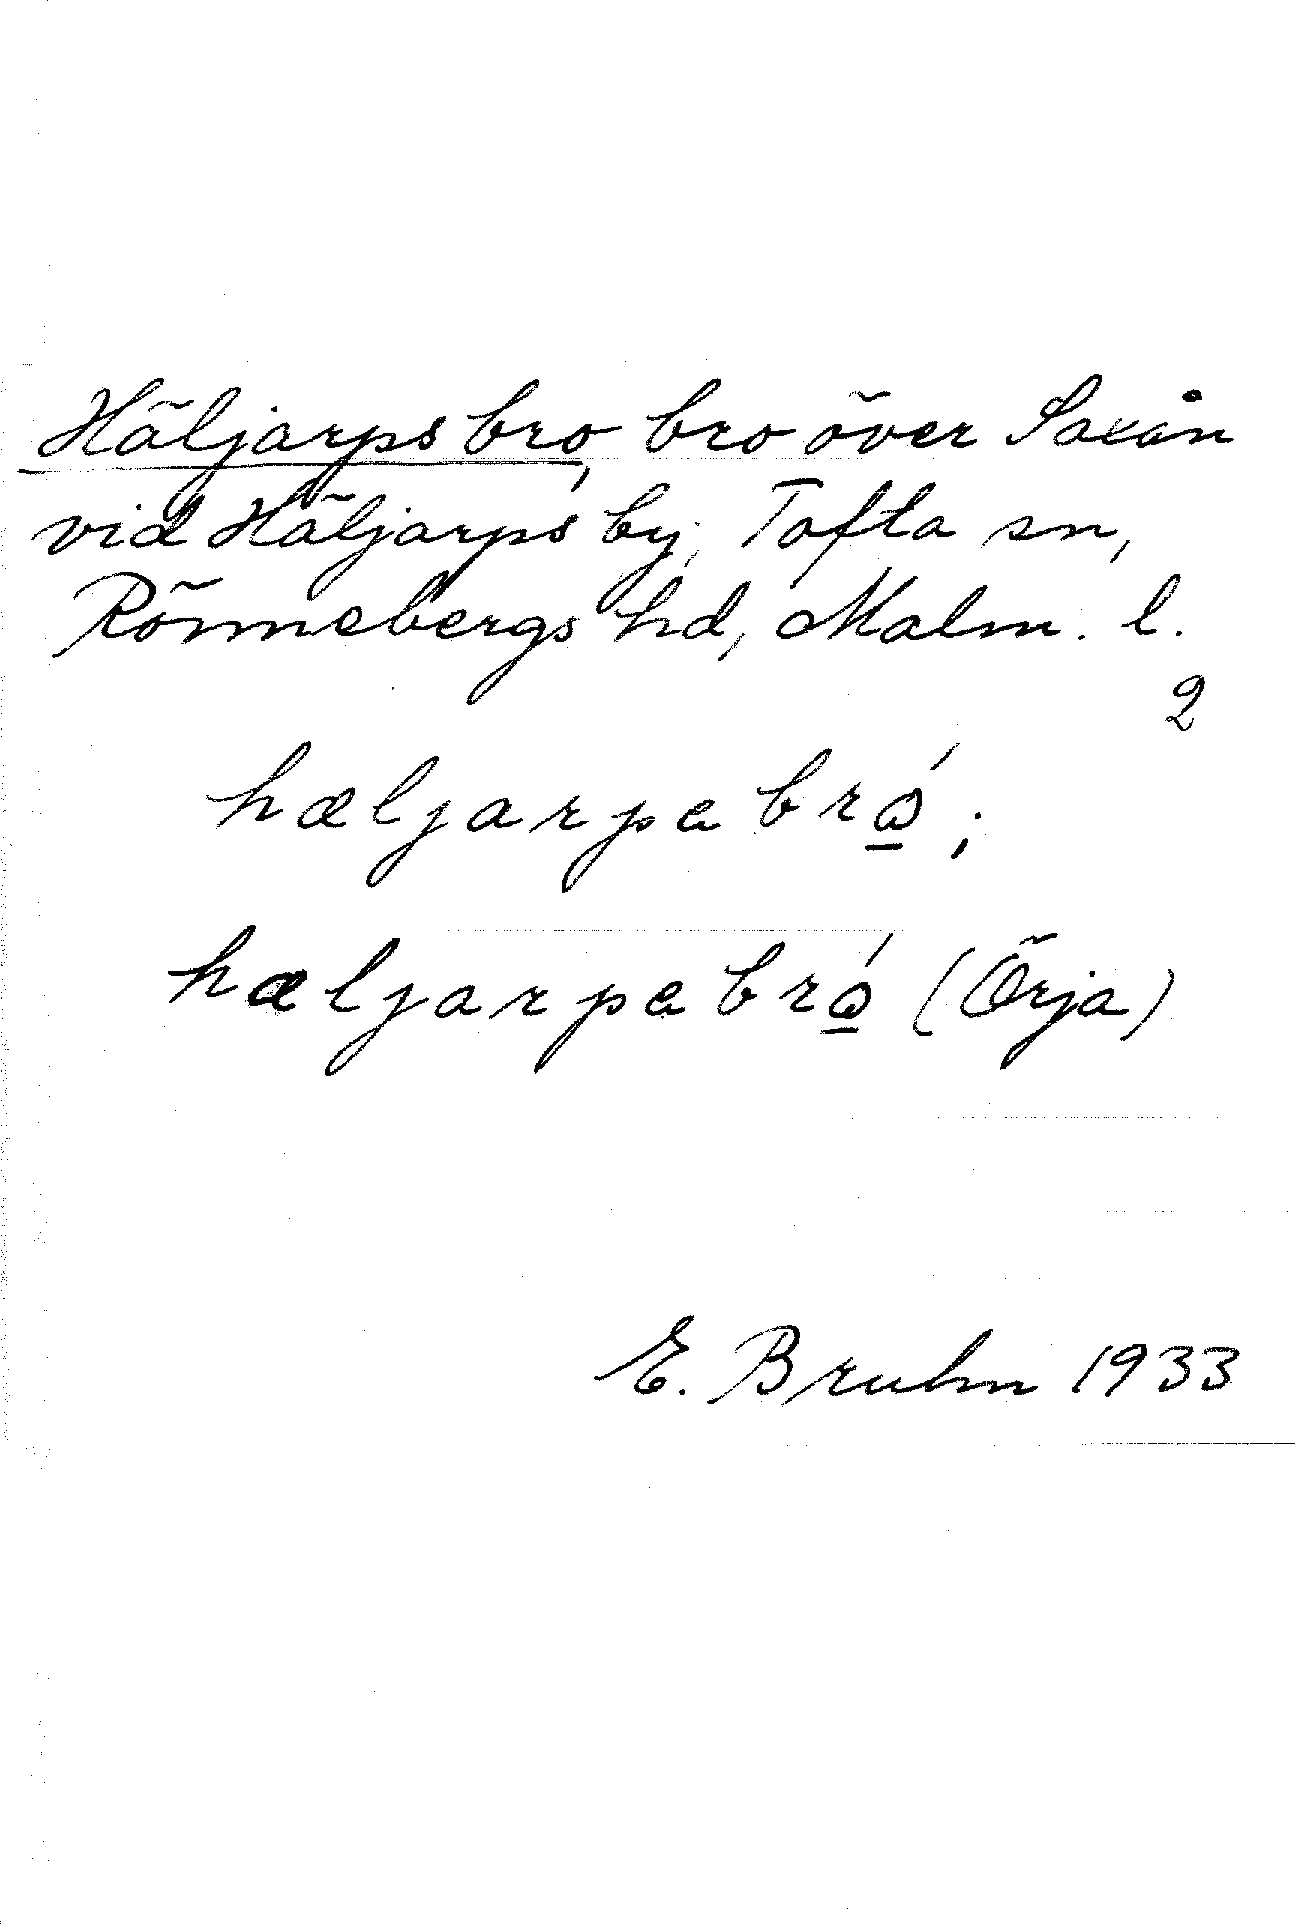 Häljarps bro, bro över Saxån
vid Häljarps by, Tofta sn,
Rönnebergs hd, Malm. l.
2
hæljarpabrǫ́;
hæljarpabrǫ́ (Örja)
E. Bruhn 1933